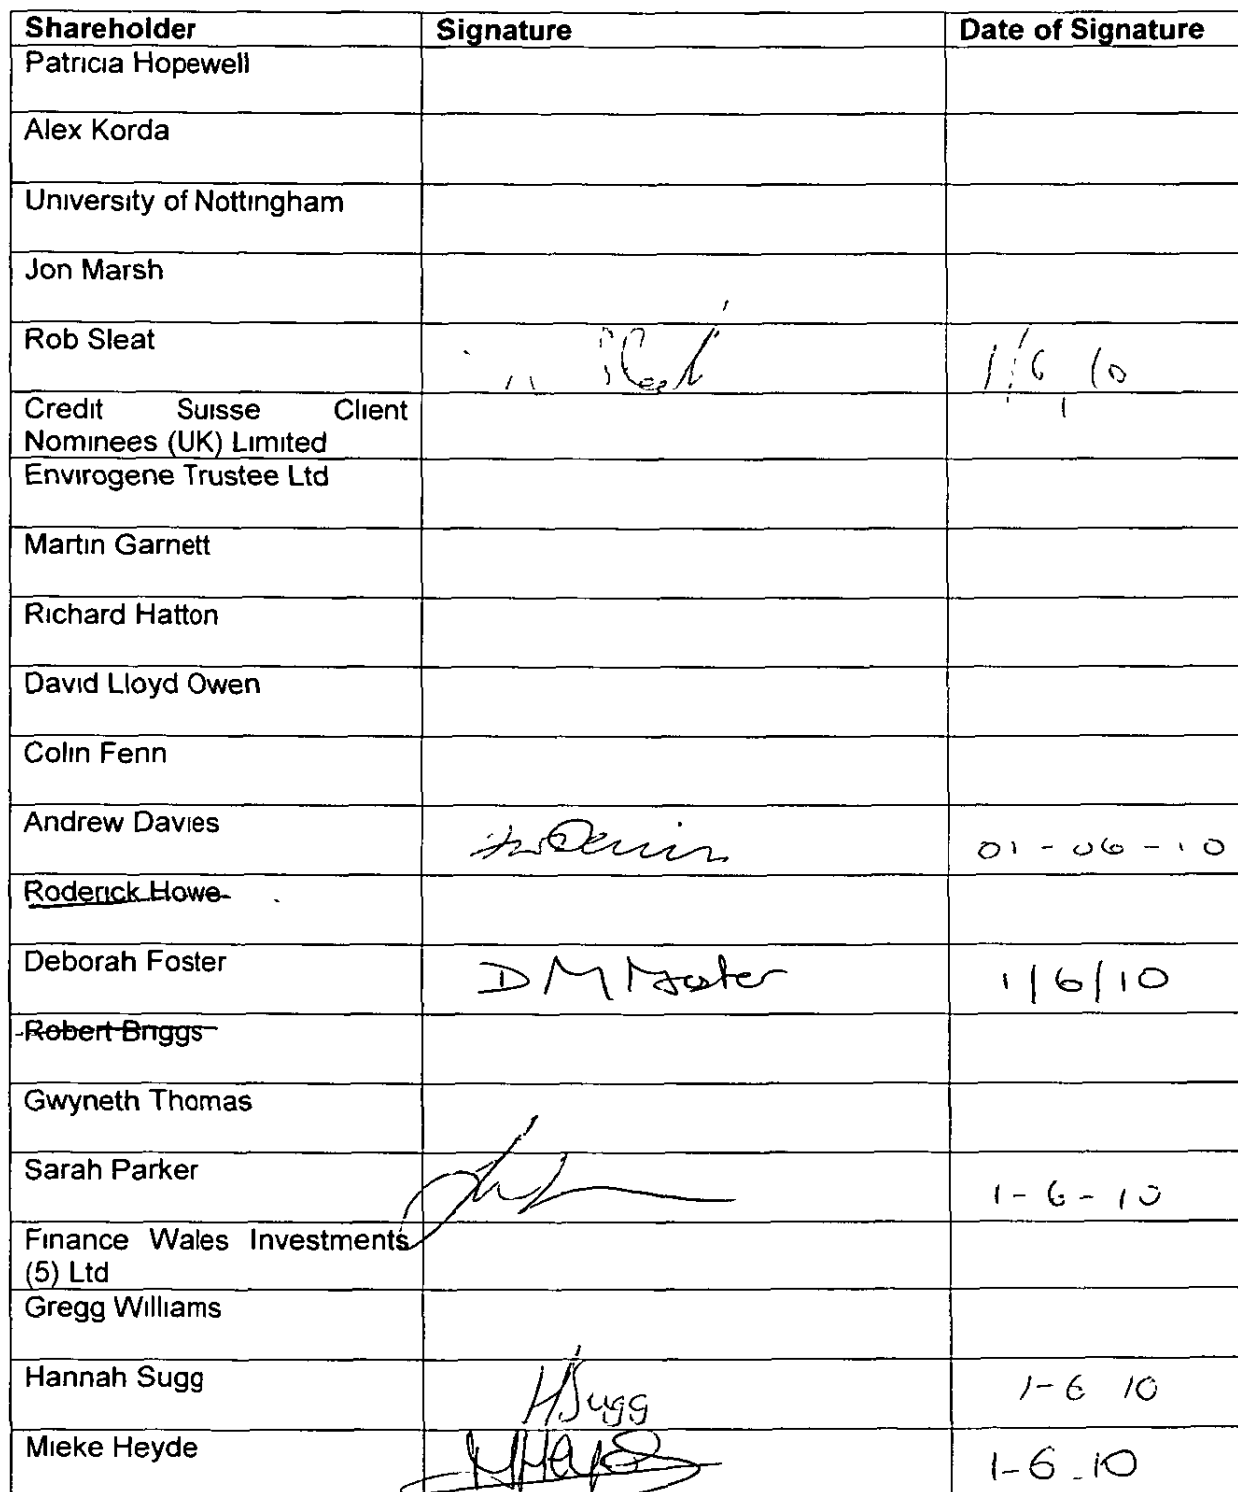 Shareholder Signature Date of Signature
Patricia Hopewell
Alex Korda
University of Nottingham
Jon Marsh
Rob Sleat 1/6 10
Credit Suisse Client
Nominees (UK) Limited
Envirogene Trustee Ltd
Martin Garnett
Richard Hatton
David Lloyd Owen
Colin Fenn
Andrew Davies 01-06-10
Roderick Howe
Deborah Foster D M Foster 1/6/10
Robert Briggs
Gwyneth Thomas
Sarah Parker 1-6-10
Finance Wales Investments
(5) Ltd
Gregg Williams
Hannah Sugg HSugg 1-6 10
Mieke Heyde 1-6-10